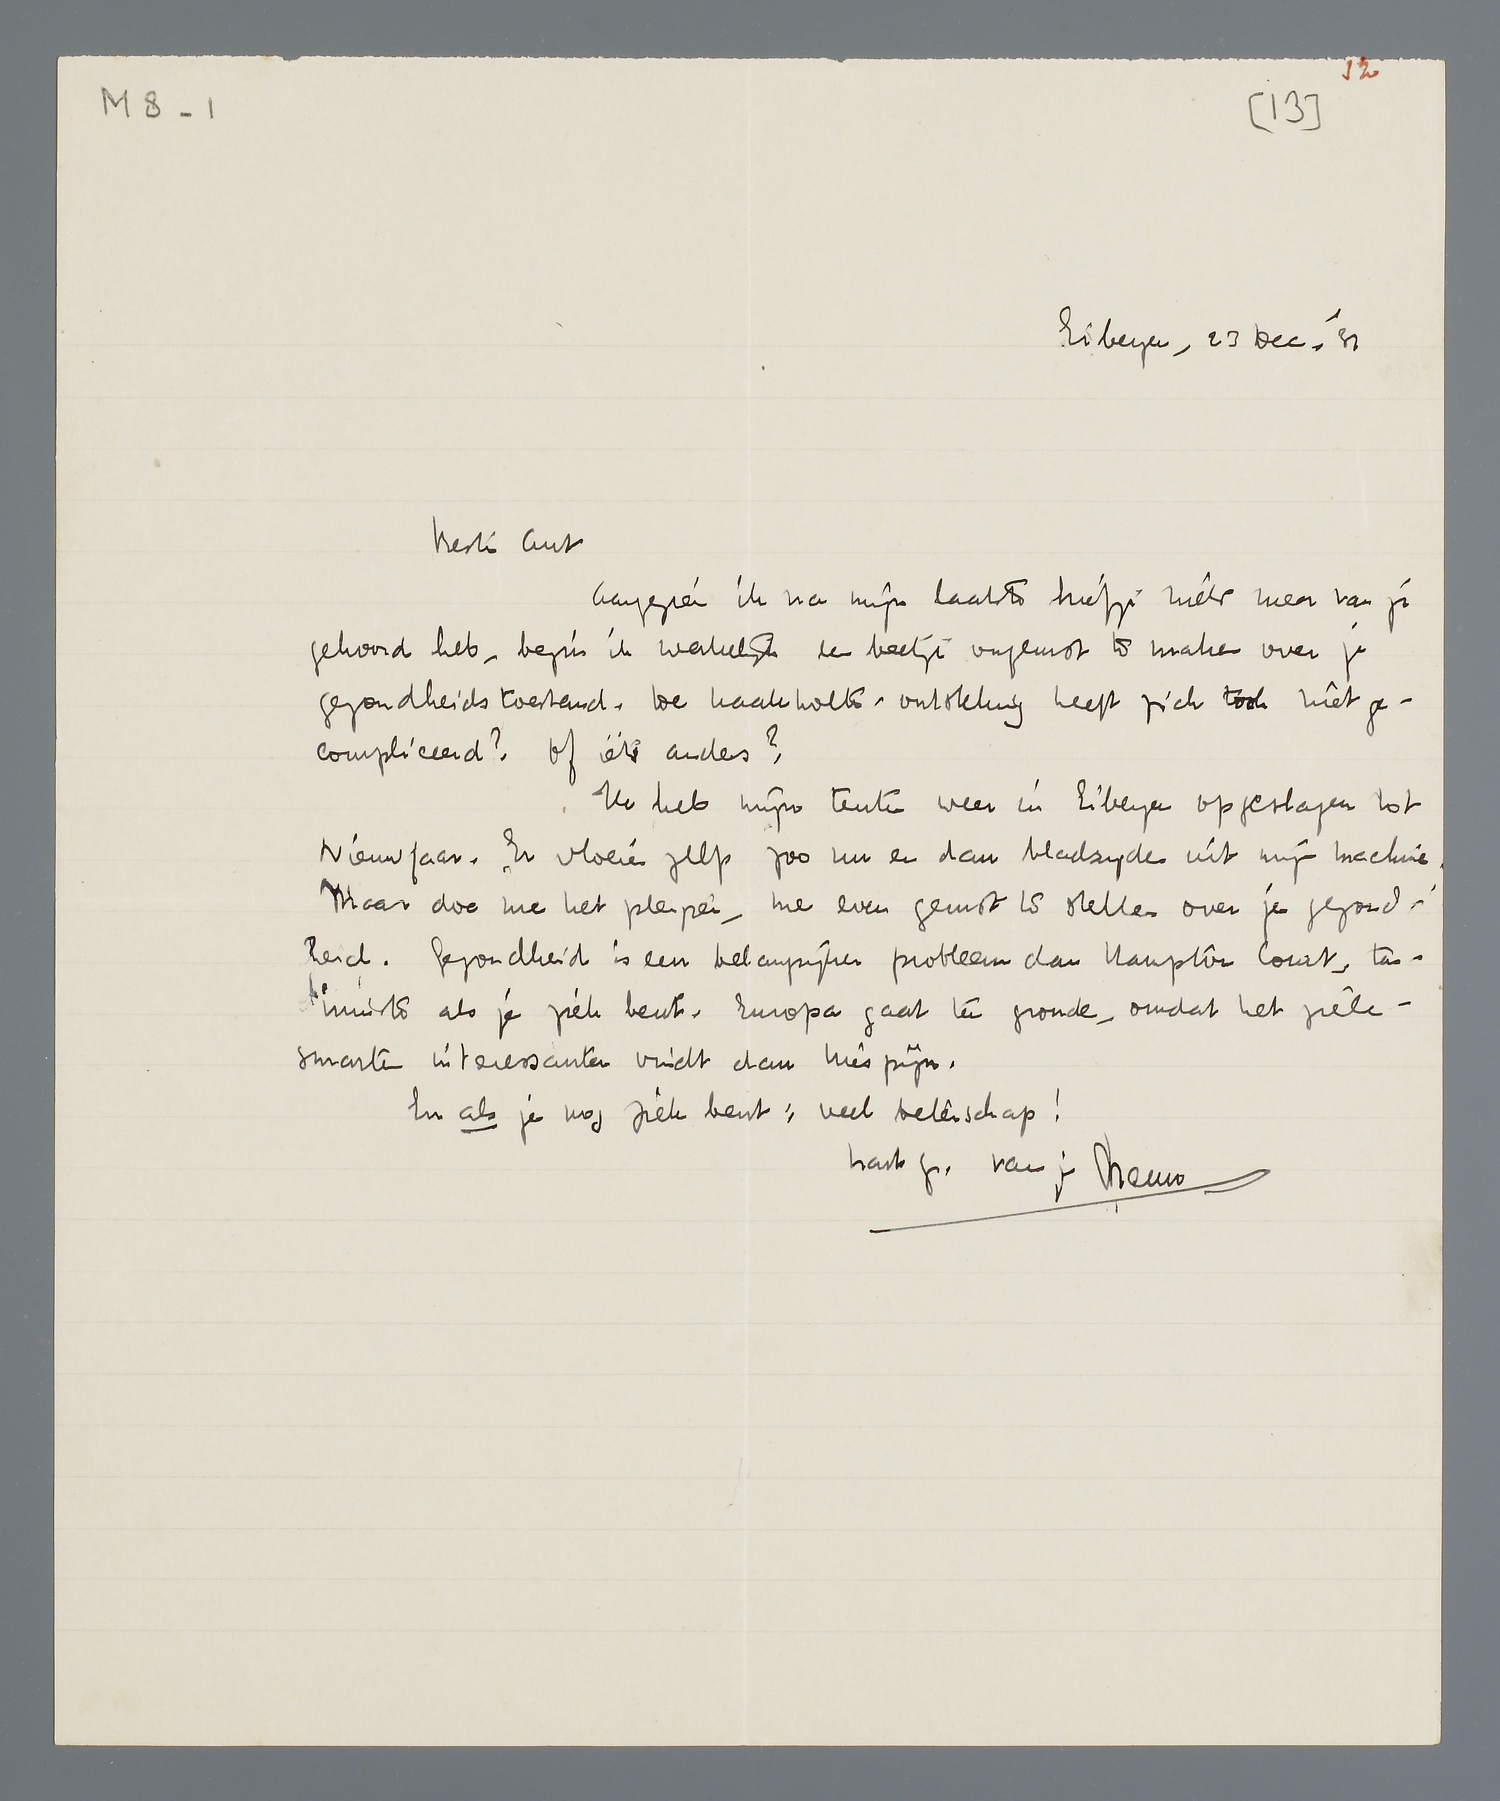 M 8 - 1
[13] 12
Eibergen, 23 Dec. '30
Beste Ant
Aangezien ik na mijn laatste briefje niets meer van je
gehoord heb, begin ik werkelijk een beetje ongerust te maken over je
gezondheidstoestand. De kaakholte-ontsteking heeft zich toch niet ge-
compliceerd? Of iets anders?
Ik heb mijn tenten weer in Eibergen opgeslagen tot
Nieuwjaar. Er vloeien zelfs zoo nu en dan bladzijden uit mijn machine.
Maar doe me het plezier, me even gerust te stellen over je gezond-
heid. Gezondheid is een belangrijker probleem dan Hampton Court, ten-
minste als je ziek bent. Europa gaat ten gronde, omdat het ziele-
smarten interessanter vindt dan kiespijn.
En als je nog ziek bent: veel beterschap!
hart. gr. van je Menno